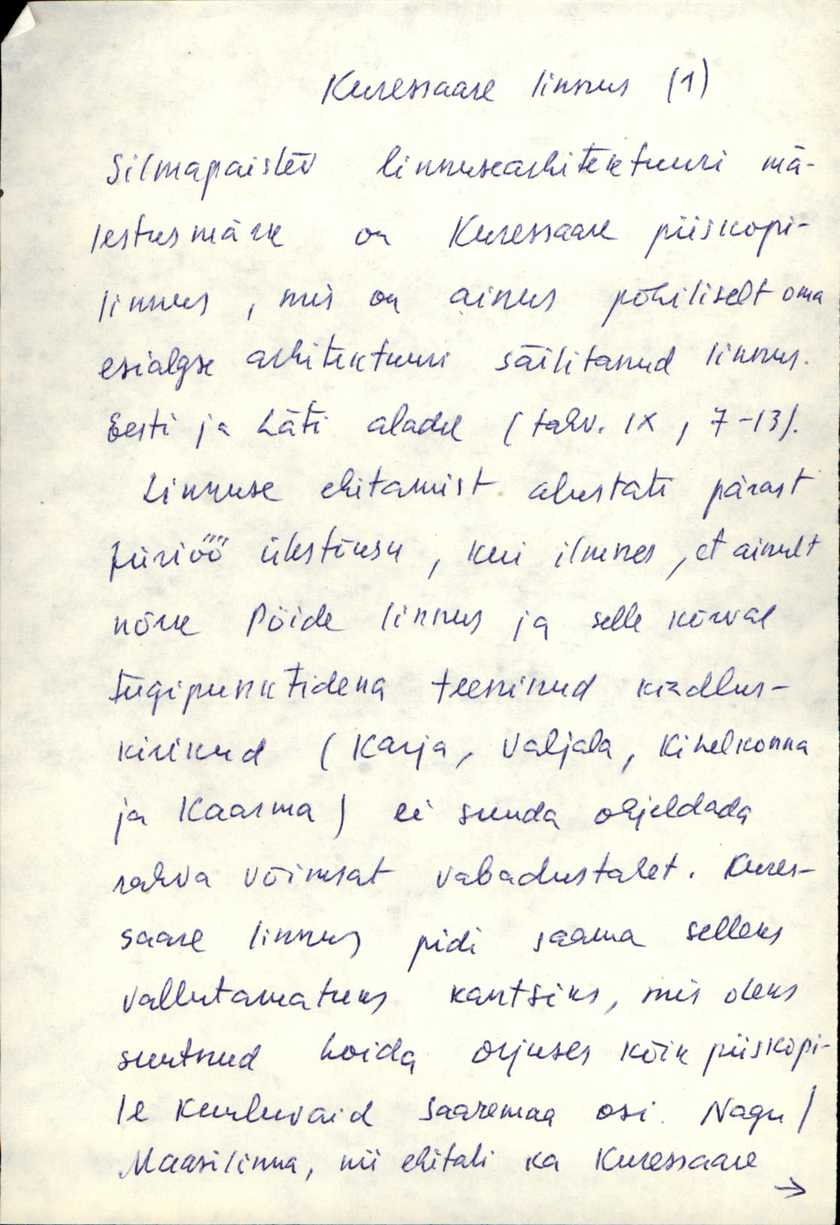 Kuressaare linnus (1)
Silmapaistev linnusearhitektuuri mä-
lestusmärk on Kuressaare piiskopi-
linnus, mis on ainus põhiliselt oma
esialgse arhitektuuri säilitanud linnus.
Eesti ja Läti aladel (tahv. IX, 7-13).
Linnuse ehitamist alustati pärast
Jüriöö ülestõusu, kui ilmnes, et ainult
nõrk Pöide linnus ja selle kõrval
tugipunktidena teeninud kindlus-
kirikud (Karja, Valjala, Kihelkonna
ja Kaarma) ei suuda ohjeldada
rahva võimsat vabadustahet. Kures-
saare linnus pidi saama selleks
vallutamatuks kantsiks, mis oleks
suutnud hoida orjuses kõik piiskopi-
le kuuluvaid Saaremaa osi. Nagu
Maasilinna, nii ehitati ka Kuressaare
→